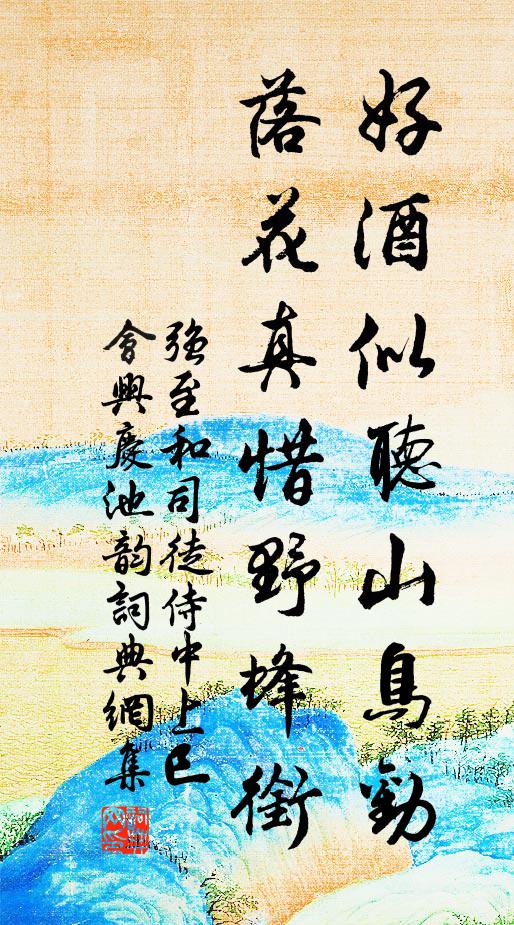 好酒似聽山鳥勸
落花真惜野蜂銜
強至和司徒侍中上巳
會興慶池韵詞典網集